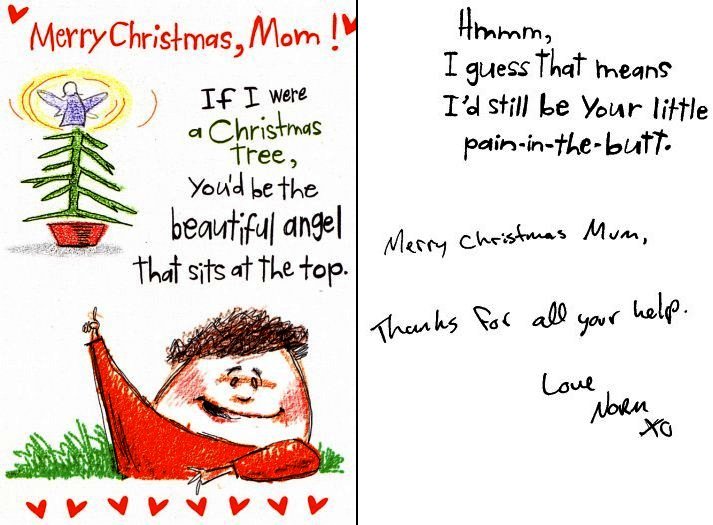 Merry Christmas, Mom!
If I were
a Christmas
Tree,
You'd be the
beautiful angel
that sits at the top.
Hmmm,
I guess that means
I'd still be your little
pain-in-the-butt.
Merry Christmas Mum,
Thanks for all your help.
Love
Norm
XO